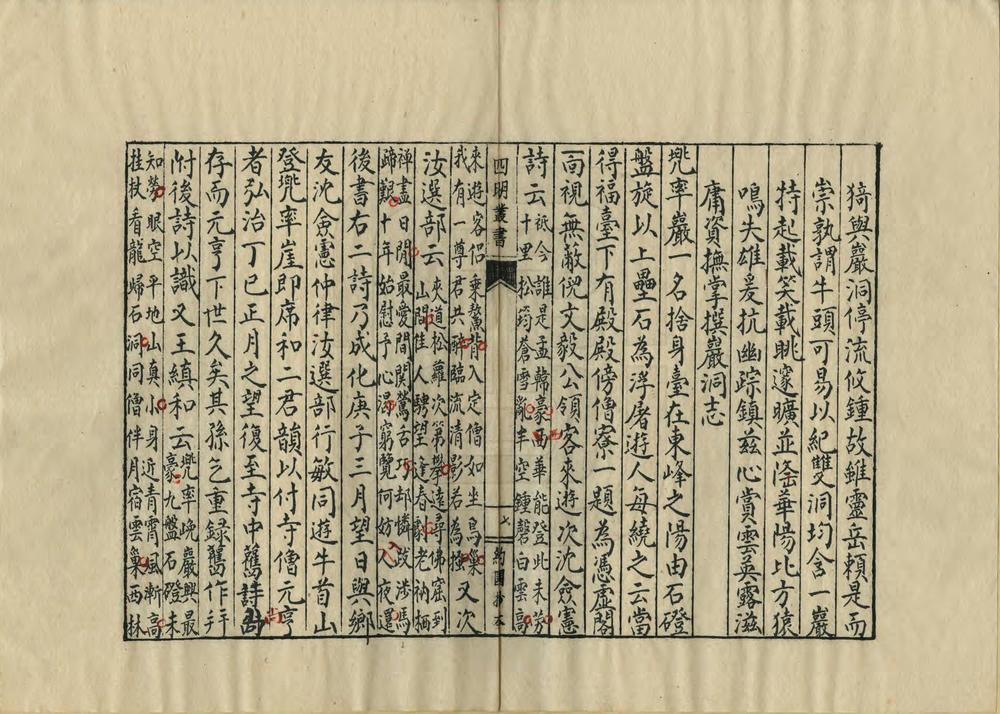 猗與巖洞停流攸鍾故雖靈岳賴是而
崇孰謂牛頭可易以紀雙洞均含一巖
特起載笑載眺邃曠並滛華陽比方猿
鳴失雄爰抗幽踪鎮茲心賞雲英露滋
庸資撫掌撰巖洞志
兠率巖一名捨身臺在東峰之陽由石磴
盤旋以上壘石為浮屠遊人每繞之云當
得福臺下有殿殿傍僧寮一題為憑虛閣
靣視無敝文毅公領客來遊次沈僉憲
詩云祇今誰是孟韓豪西華能登此未勞
十里松筠蒼雪亂半空鍾磬白雲高
四明叢書
七
約園抄本
來遊客侶乘鰲背入定僧如坐鳥巢
我有一尊君共醉臨流清影若為又次
汝選部云夾道松蘿次第攀遠尋佛窟到
山間佳人騁望逢春霽老衲栖
禪盡日閒最愛間關鶯舌巧却憐跋涉馬
蹄艱十年始慰予心渴窮覽何妨入夜還
後書右二詩乃成化庚子三月望日與鄉
友沈僉憲仲律汝選部行敏同遊牛首山
登兠率崖即席和二君韻以付寺僧元亨
者弘治丁巳正月之望復至寺中舊詩尚
存而元亨下世久矣其孫乞重録舊作并
附後詩以識又王縝和云兠率晚巖興最
豪九盤石磴未
知勞眼空平地山真小身近青霄風漸高
挂杖看龍歸石洞同僧伴月宿雲巢西林